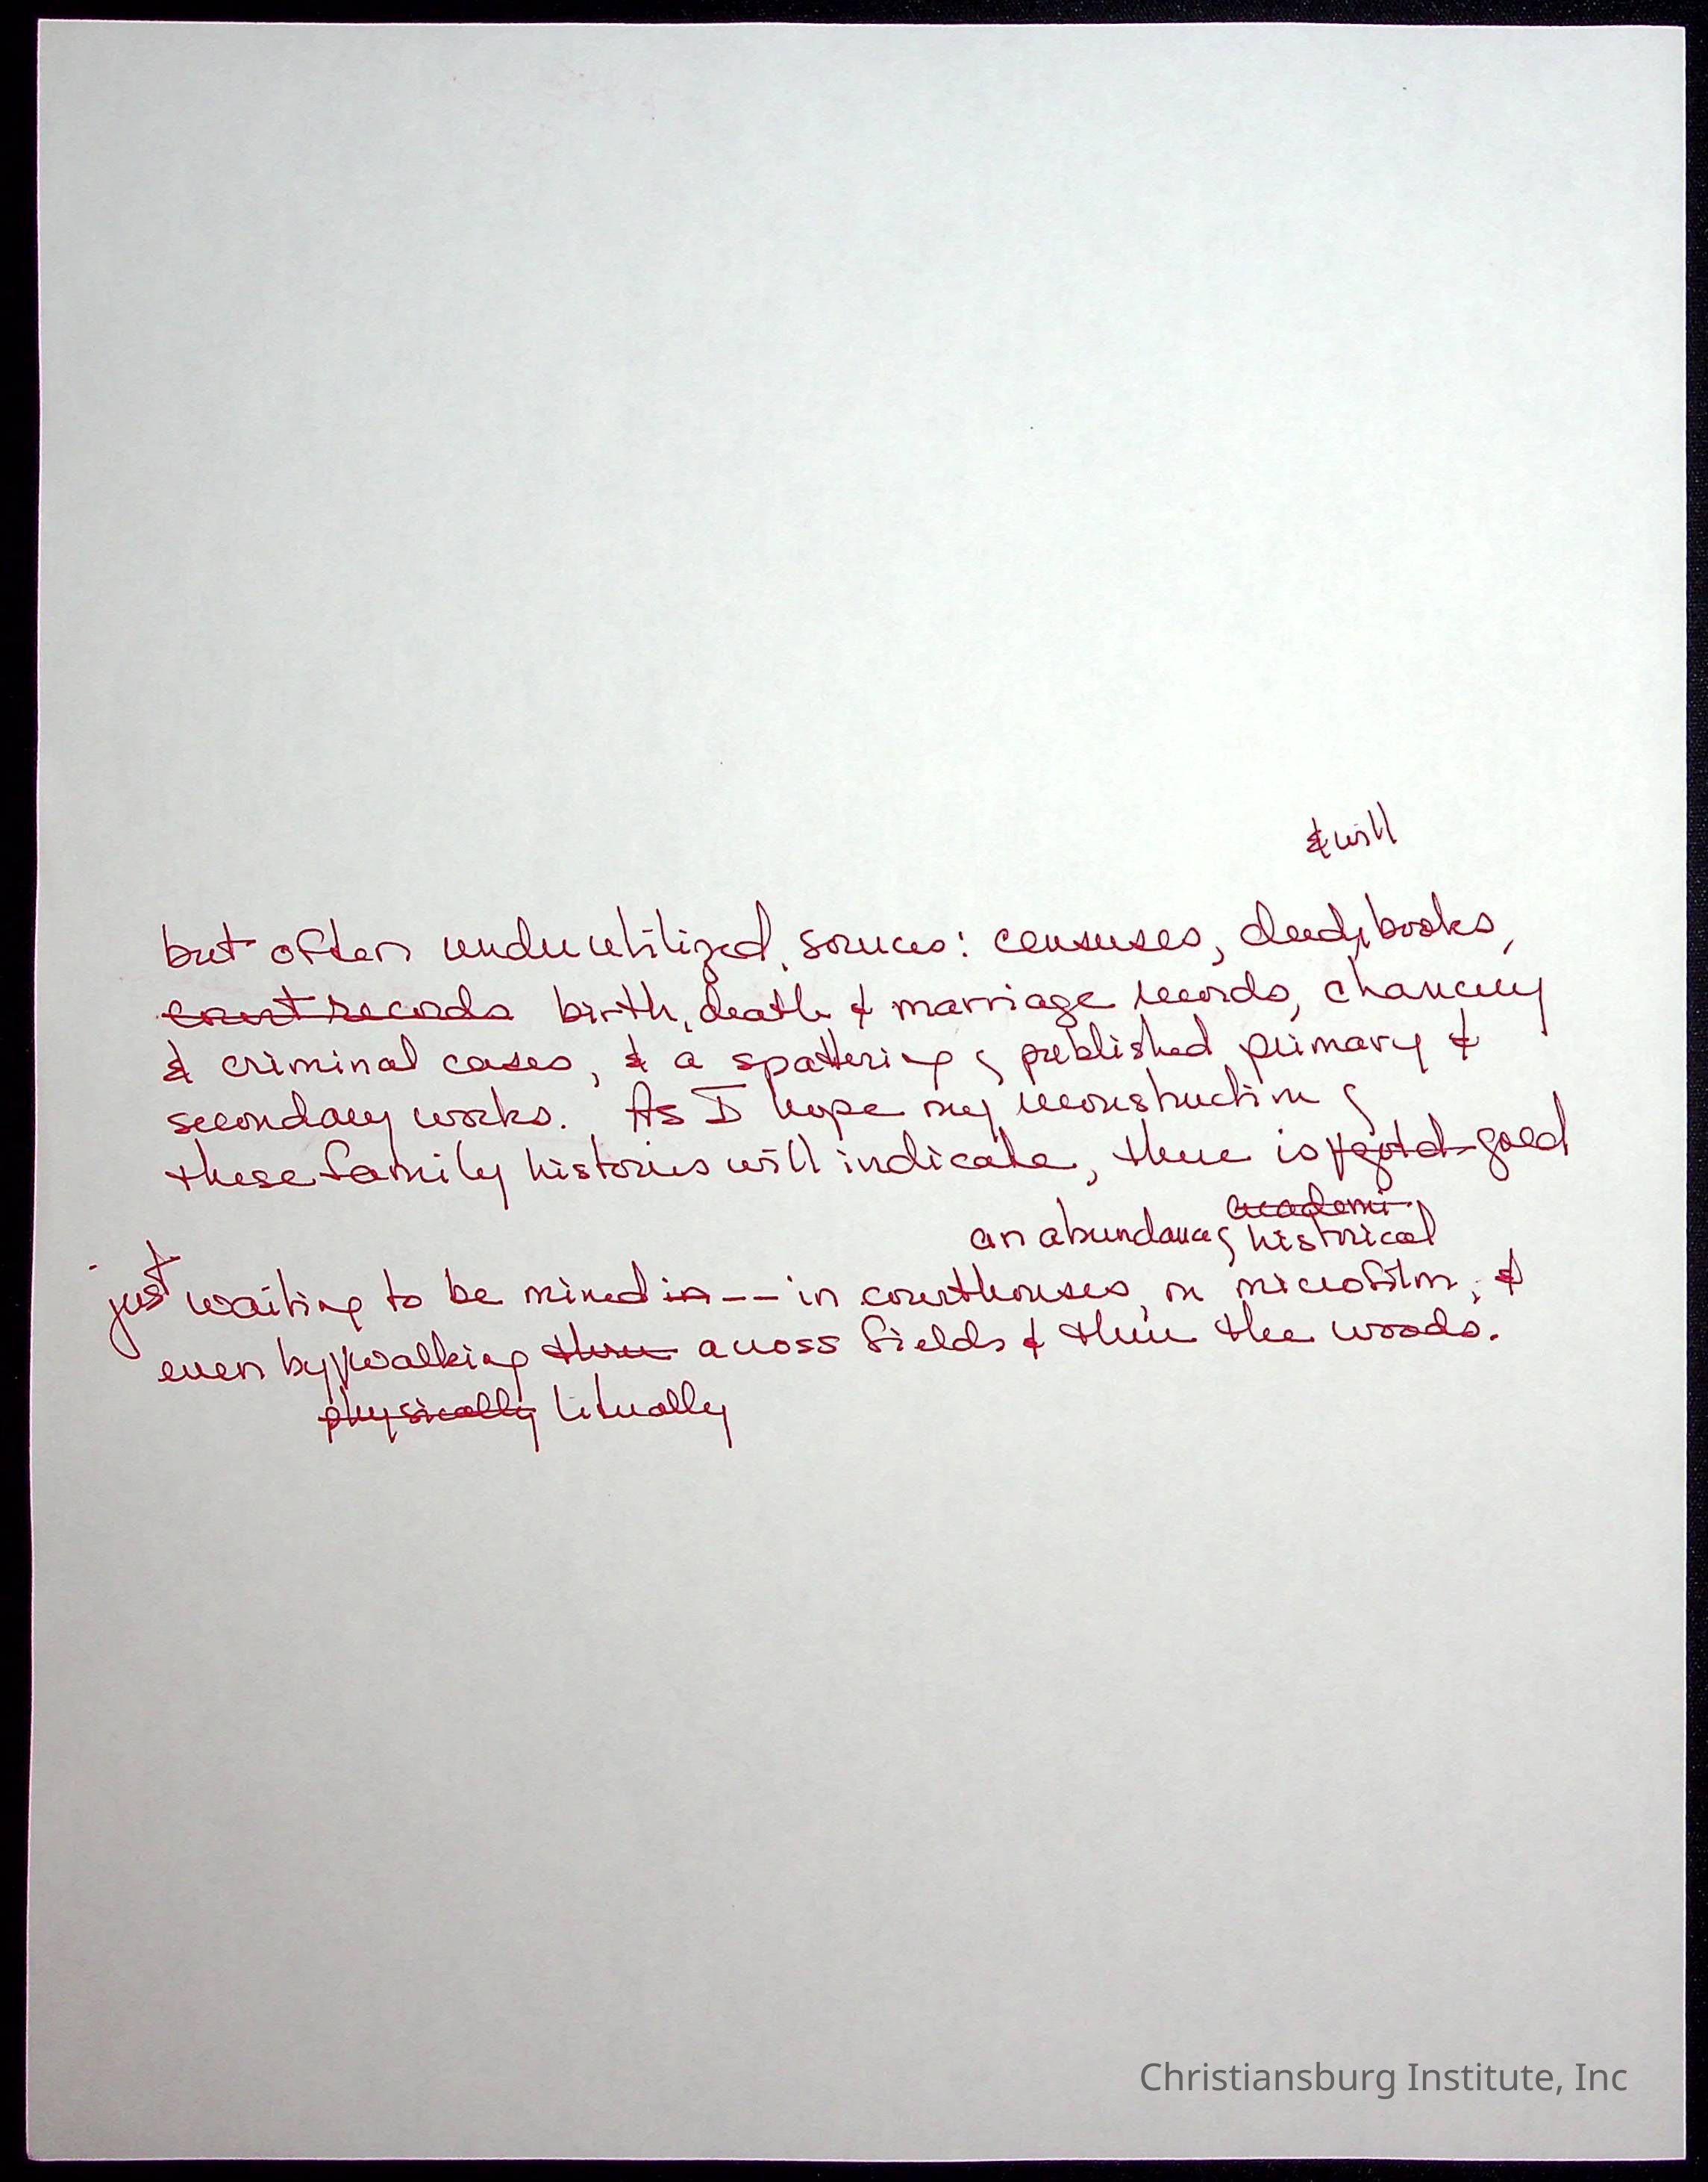 & will
but often underutilized sources: censuses, deed books,
court records birth, death & marriage records, chancery
& criminal cases, & a spattering of published primary &
secondary works. As I hope my reconstruction of
these family histories will indicate, there is gold
academi
an abundance of historical
just waiting to be mined in -- in courthouses, on microfilm, &
even by walking thru across fields & thru the woods.
physically literally
Christiansburg Institute, Inc